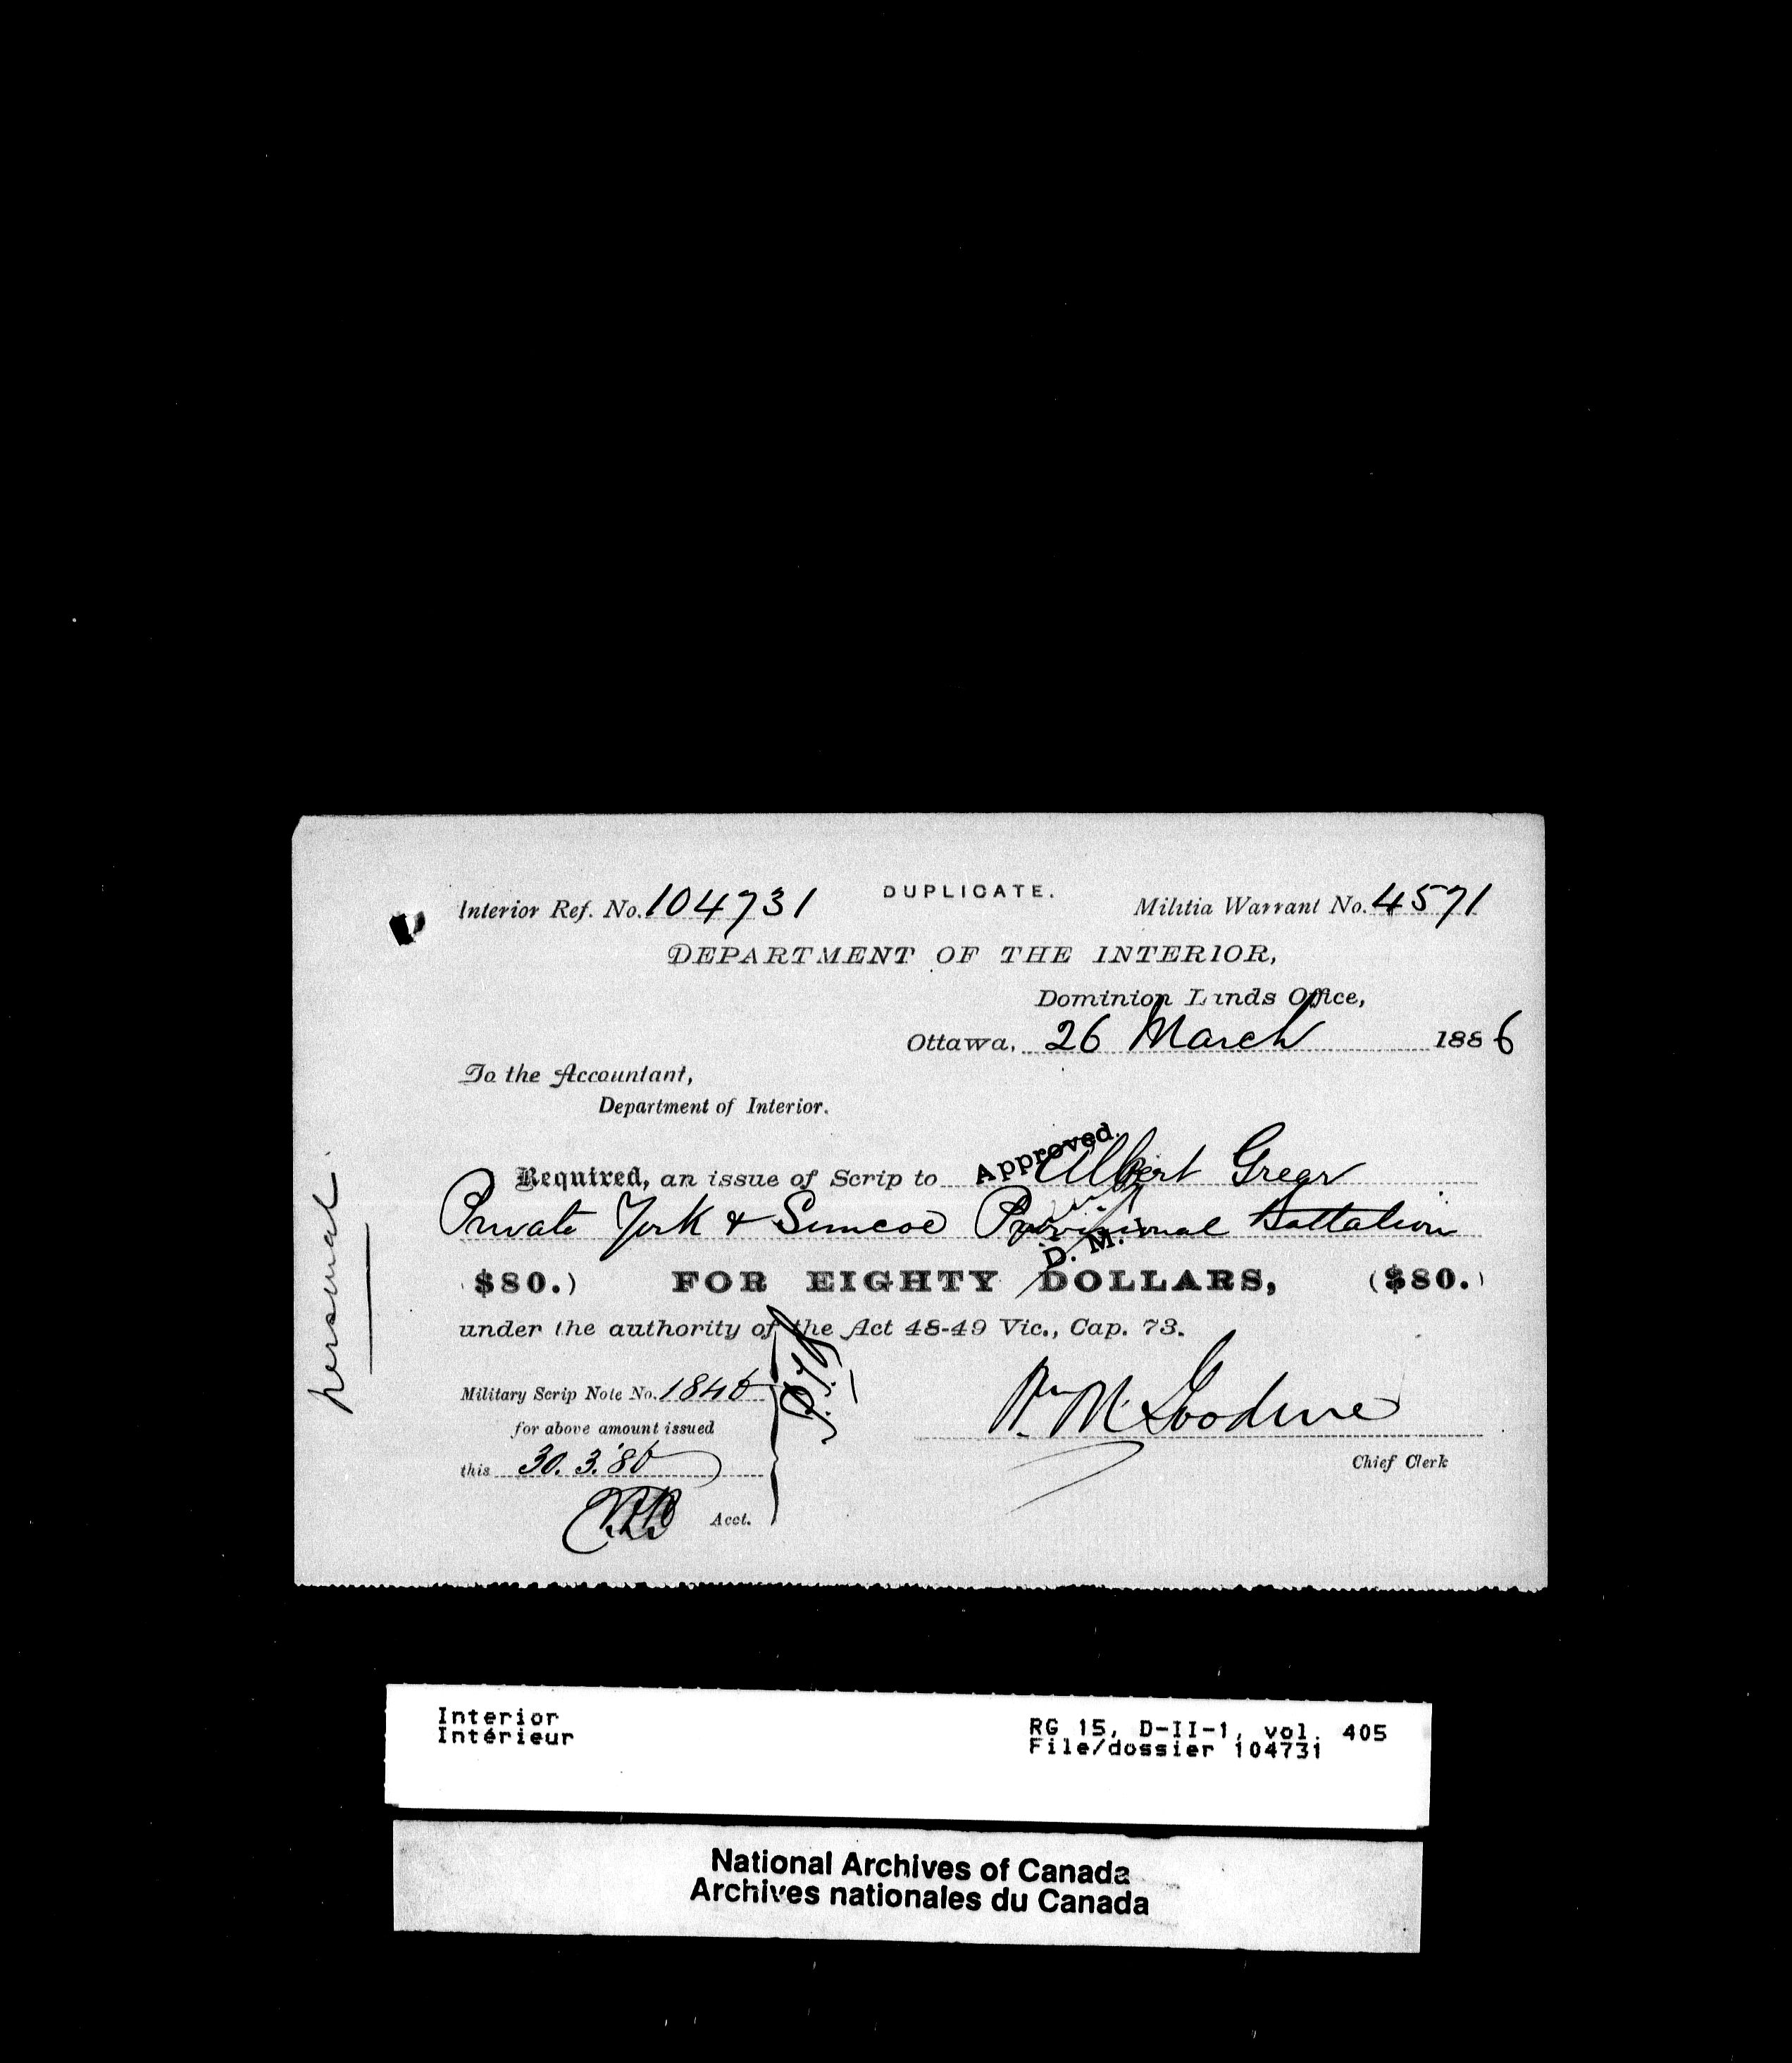 DUPLICATE.
Interior Ref. No. 104731 Militia Warrant No. 4571
DEPARTMENT OF THE INTERIOR,
Dominion Lands Office,
Ottawa, 26 March 1886
To the Accountant,
Department of Interior.
Approved.
Required, an issue of Scrip to Albert Grear
Private York & Simcoe Provisional Battalion
D. M.
$80.) FOR EIGHTY DOLLARS, ($80.)
under the authority of the Act 48-49 Vic., Cap. 73.
Military Scrip Note No. 1846
for above amount issued
this 30.3.'86
Acct.
Wm M. Goodeve
Chief Clerk
personal.
Interior
Intérieur
RG 15, D-II-1, vol. 405
File/dossier 104731
National Archives of Canada
Archives nationales du Canada